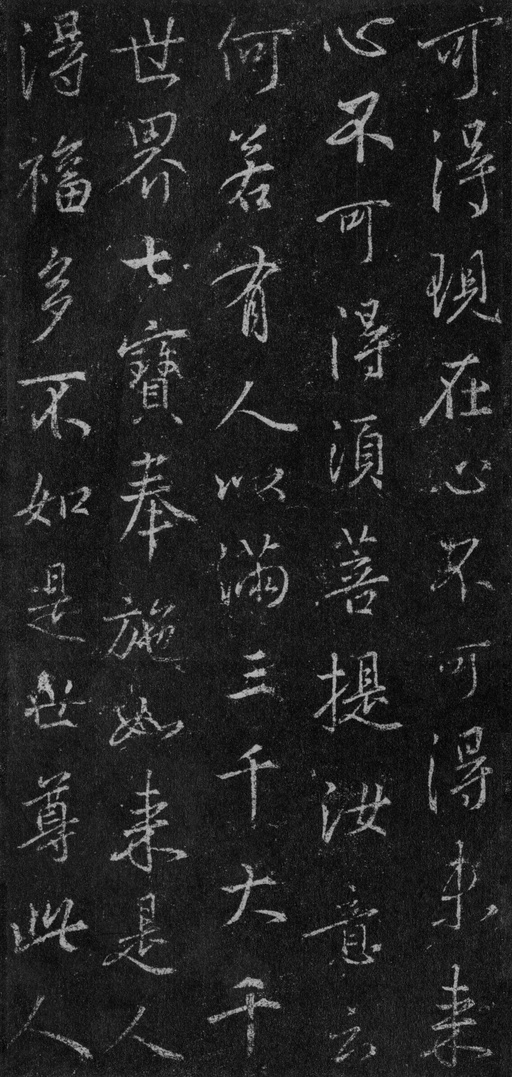 可得現在心不可得未来
心不可得須菩提汝意云
何若有人以滿三千大千
世界七寶奉施如来是人
得福多不如是世尊此人